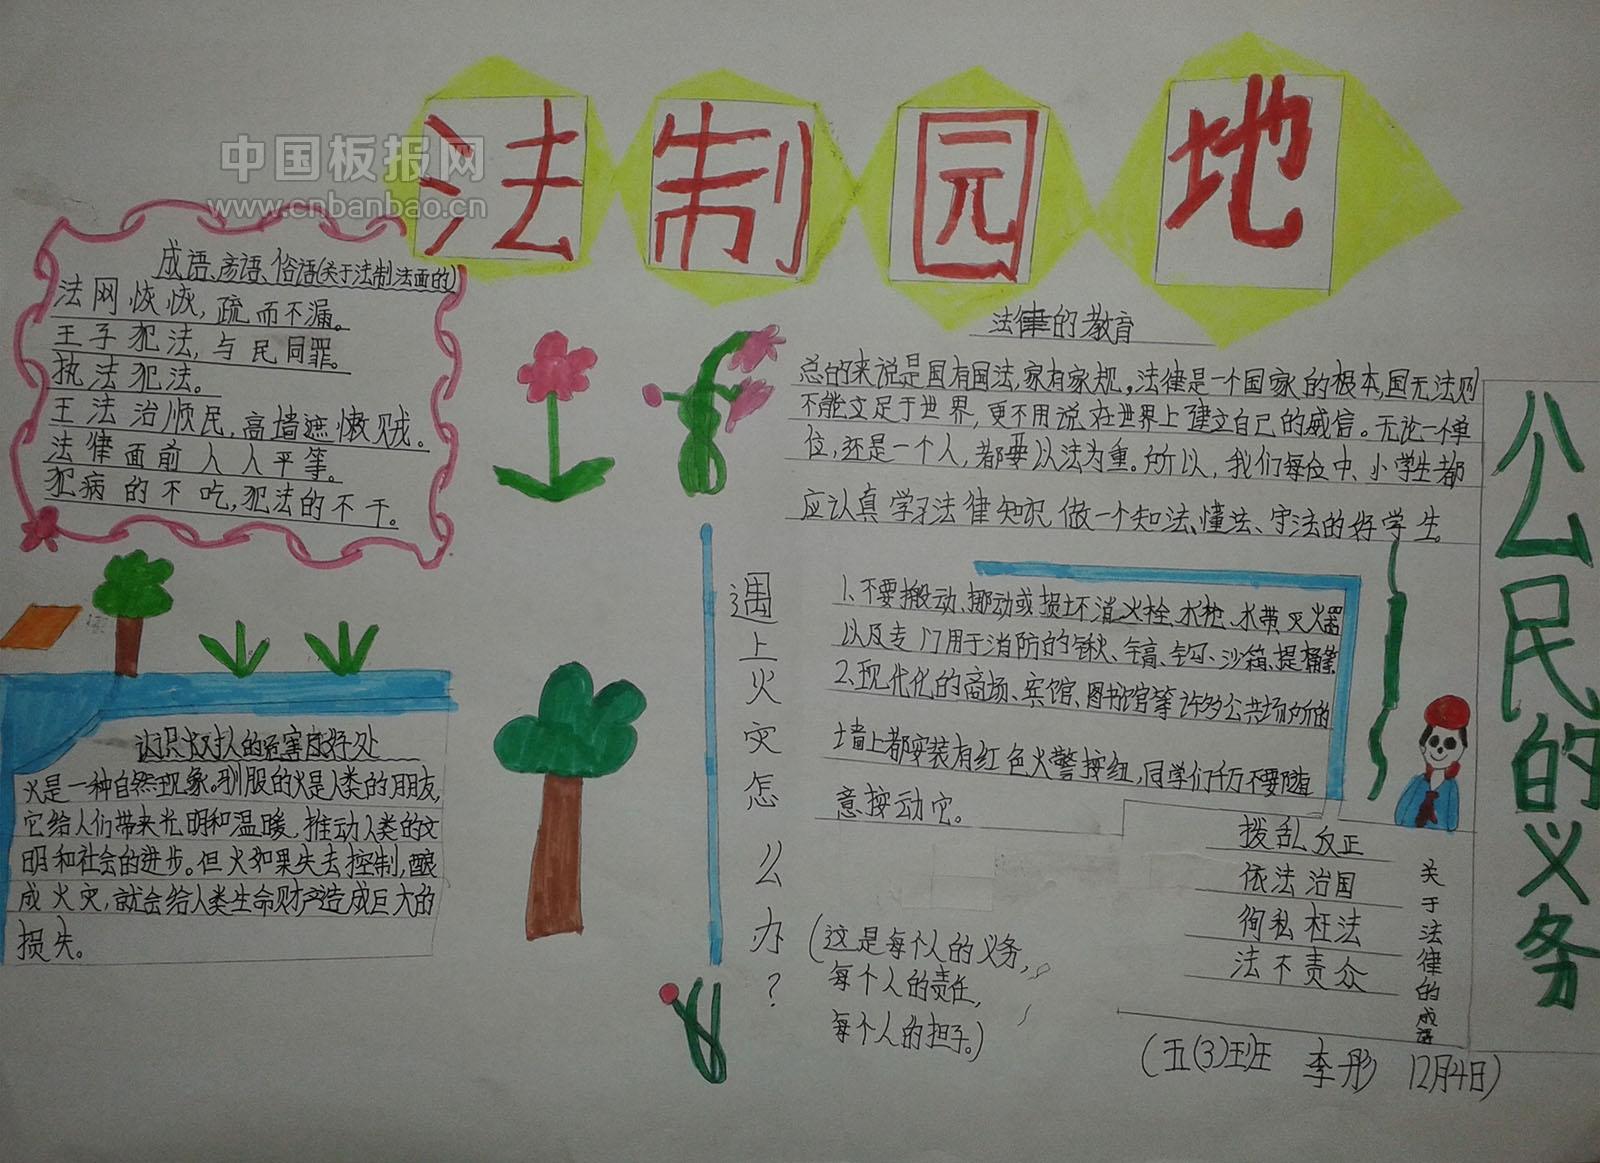 法制园地
中国板报网
www.cnbanbao.cn
成语、彦语、俗语(关于法制法面的)
法网恢恢,疏而不漏。
王子犯法,与民同罪。
执法犯法。
王法治顺民,高墙遮懒贼。
法律面前人人平等。
犯病的不吃,犯法的不干。
认识火对人的危害及好处
火是一种自然现象。驯服的火是人类的朋友,
它给人们带来光明和温暖,推动人类的文
明和社会的进步。但火如果失去控制,酿
成火灾,就会给人类生命财产造成巨大的
损失。
法律的教育
总的来说是国有国法,家有家规。法律是一个国家的根本,国无法则
不能立足于世界,更不用说在世界上建立自己的威信。无论一个单
位,还是一个人,都要以法为重。所以,我们每位中、小学生都
应认真学习法律知识,做一个知法、懂法、守法的好学生。
遇上火灾怎么办?
1、不要搬动、挪动或损坏消火栓、水枪、水带、灭火器
以及专门用于消防的锹、镐、钩、沙箱、提桶等
2、现代化的商场、宾馆、图书馆等许多公共场所的
墙上都安装有红色火警按纽,同学们千万不要随
意按动它。
(这是每个人的义务,
每个人的责任,
每个人的担子。)
拨乱反正
依法治国
徇私枉法
法不责众
关于法律的成语
公民的义务
(五(3)班 李彤 12月4日)